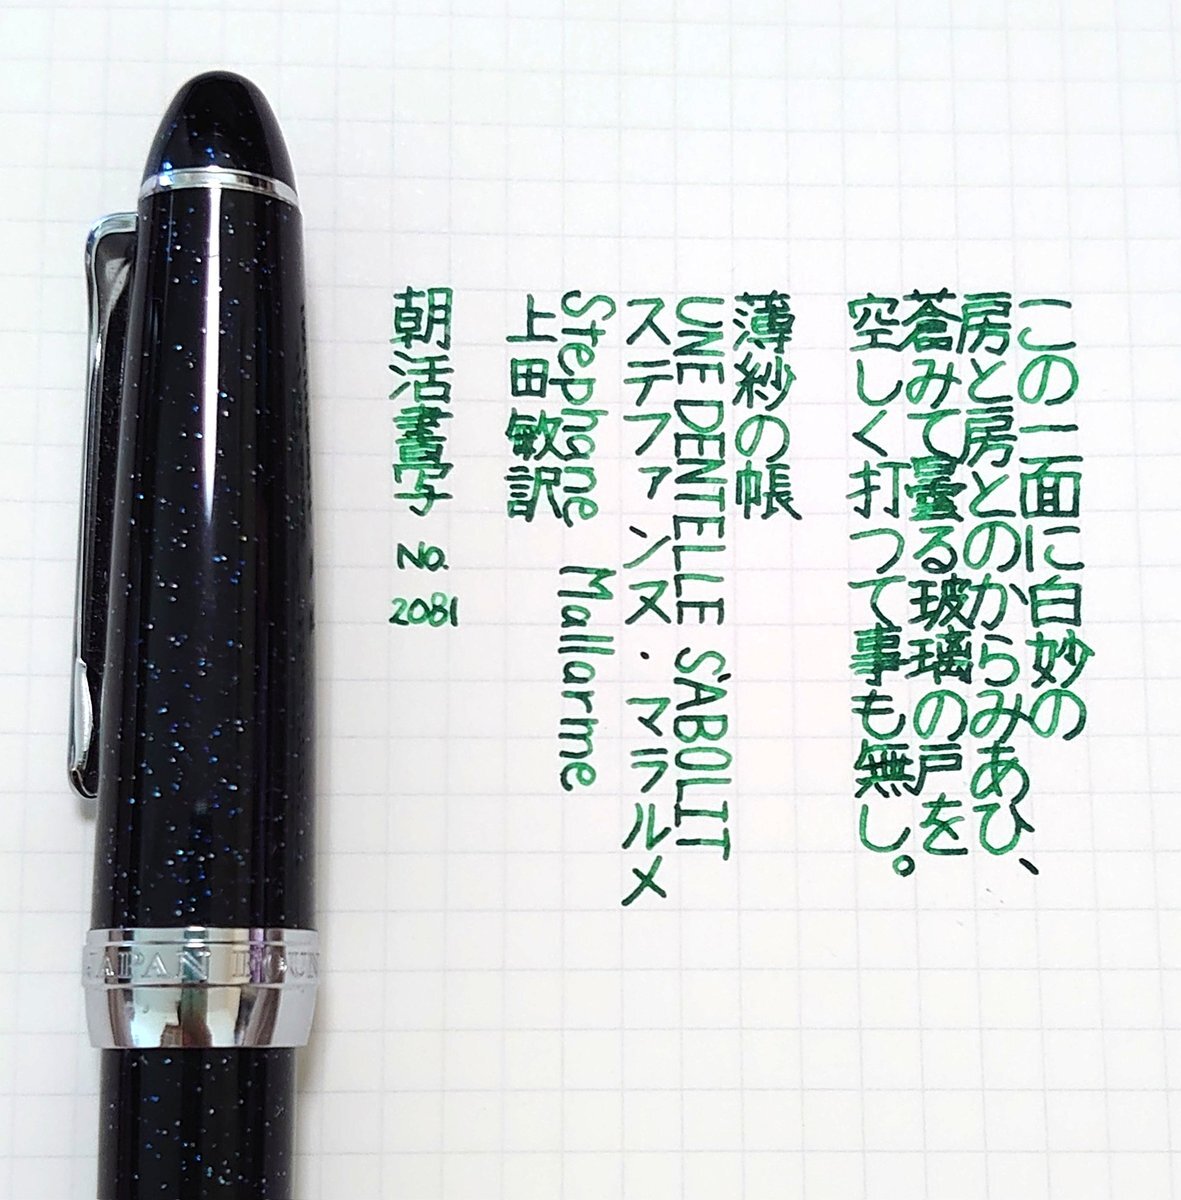 この一面に白妙の
房と房とのからみあひ、
蒼みて曇る玻璃の戸を
空しく打つて事も無し。
薄紗の帳
UNE DENTELLE S'ABOLIT
ステファンヌ・マラルメ
Stephane Mallarme
上田敏訳
朝活書写 No. 2081
JAPAN